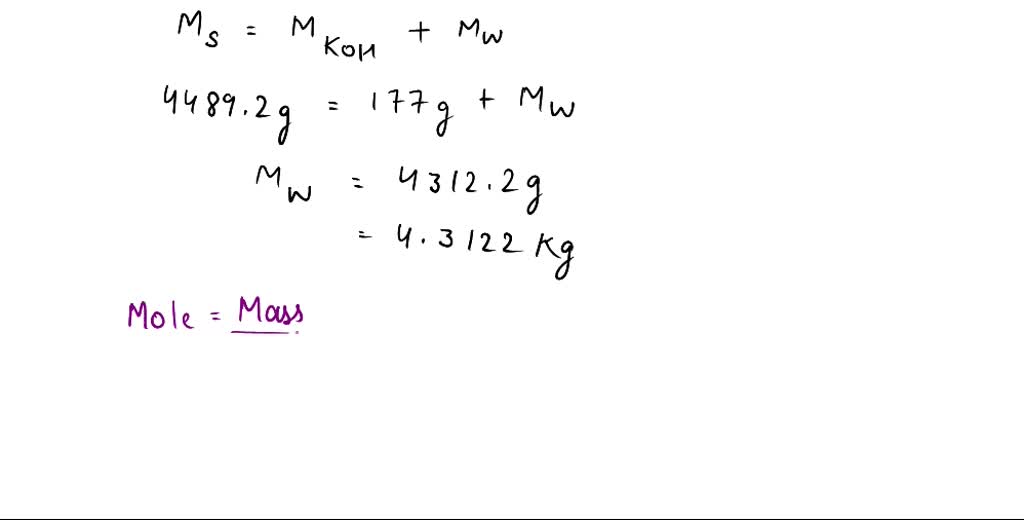 Ms = MKOH + Mw
4489.2g = 177g + Mw
Mw = 4312.2g
= 4.3122 Kg
Mole = Mass